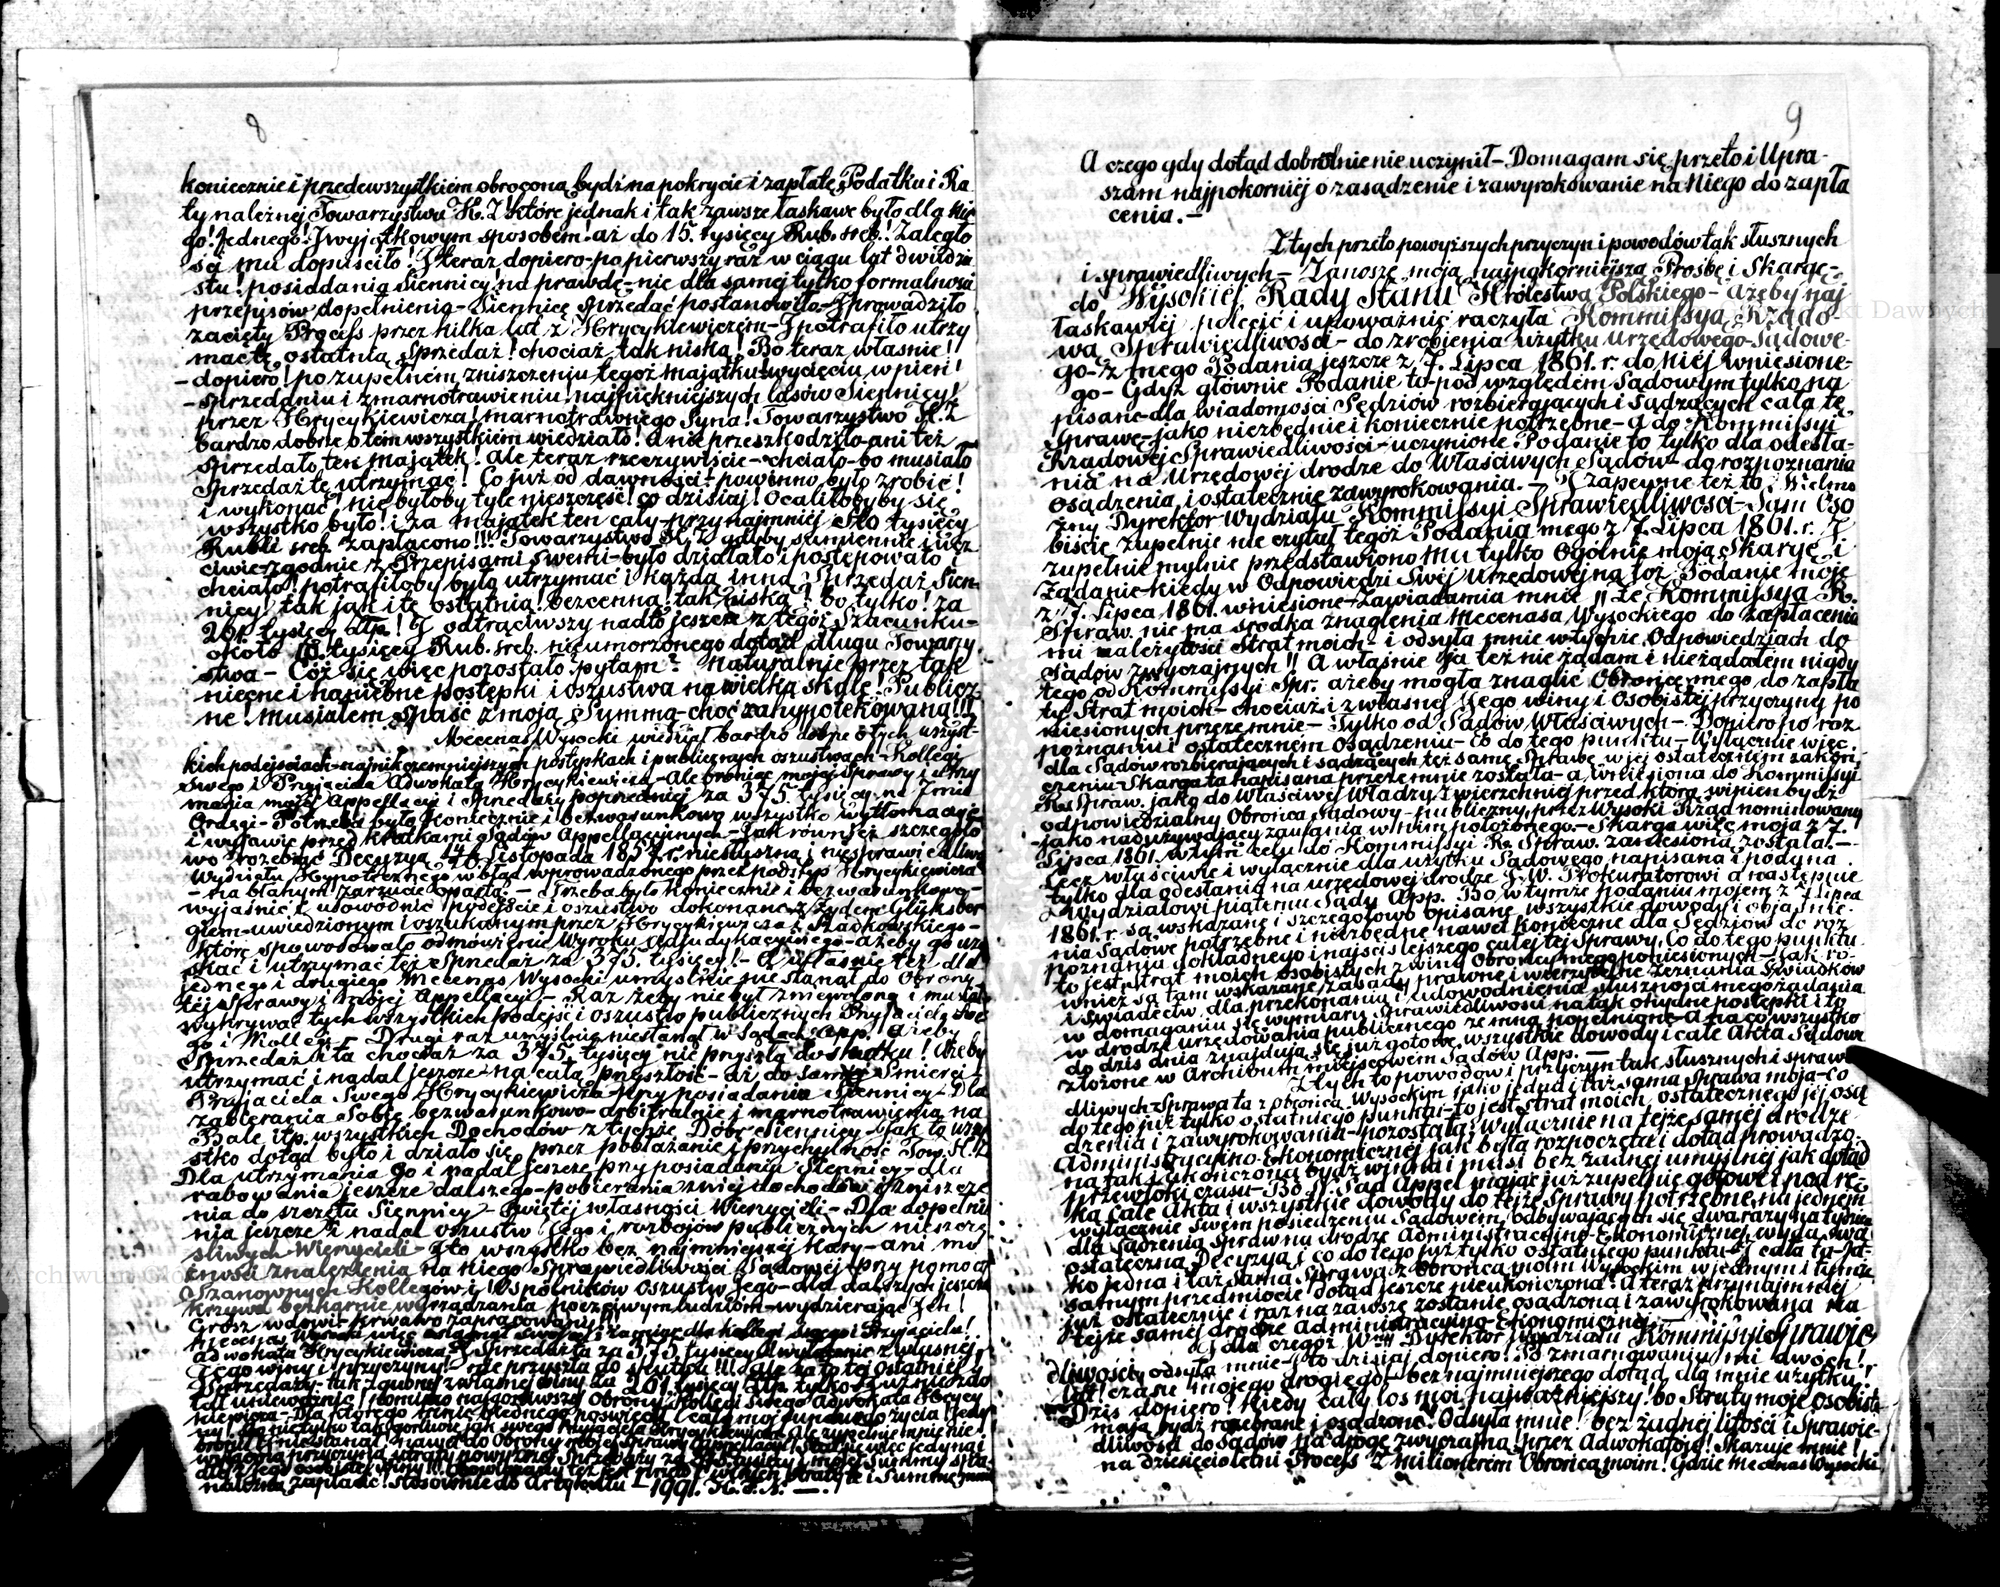 8
koniecznie i przedewszystkiém obroconą bydź na pokrycie i zapłatę Podatku i Ra
ty należnéj Towarzystwu K. Z które jednak i tak zawsze łaskawe było dla Nie
go! Jednego! I wyjątkowym sposobem! aż do 15. tysięcy Rub. sreb.! Zaległo
ści mu dopuściło! I teraz dopiero po pierwszy raz w ciągu lat dwudzie
stu! posiadania Siennicy! na prawdę nie dla saméj tylko formalności
przepisów dopełnienia Siennicę sprzedać postanowiło I prowadziło
zacięty Process przez kilka lat z Hrycykiewiczem I potrafiło utrzy
mać tę ostatnią Sprzedaż! chociaż tak niską! Bo teraz właśnie!
dopiero! po zupełném zniszczeniu tegoż majątku wycięciu w pień!
sprzedaniu i zmarnotrawieniu najpiękniejszych lasów Siennicy!
przez Hrycykiewicza! marnotrawnego Syna! Towarzystwo K. Z
bardzo dobrze o tém wszystkiém wiedziało! a nie przeszkodziło ani też
sprzedało ten majątek! Ale teraz rzeczywiście chciało bo musiało
Sprzedaż tę utrzymać! Co już od dawności powinno było zrobić!
i wykonać! nie byłoby tyle nieszczęść! co dzisiaj! Ocaliłobyby się
wszystko było! i za majątek ten cały przynajmniéj Sto tysięcy
Rubli sreb. zapłacono!!! Towarzystwo K. Z gdyby sumiennie i ucz
ciwie zgodnie z Przepisami swemi było działało i postępowało i
chciało! potrafiłoby było utrzymać i każdą inną Sprzedaż Sien
nicy! tak jak i tę ostatnią! bezcenną! tak niską! bo tylko! za
201. tysięcy złp.! I odtrąciwszy nadto jeszcze z tegoż Szacunku
około 10. tysięcy Rub. sreb. nieumorzonego dotąd długu Towarzy
stwa - Cóż się więc pozostało pytam? Naturalnie przez tak
niecne i haniebne postępki i oszustwa na wielką skalę! Publicz
ne! musiałem spaść z moją Summą choć zahypotekowaną!!!
Mecenas Wysocki wiedział bardzo dobrze o tych wszyst
kich podejściach najnikczemniejszych postępkach i publicznych oszustwach Kollegi
swego i Przyjaciela Adwokata Hrycykiewicza Ale broniąc mojéj Sprawy i utrzy
mania mojéj Appellacyi i Sprzedaży poprzedniéj za 375. tysięcy
Potrzeba było koniecznie i bezwarunkowo wszystko wytłomaczyć
i wyjawić przed kratkami Sądów Appellacyjnych - Jak również szczegóło
wo rozebrać Decyzyą Listopada 1857 r. niesłuszną i niesprawiedliwą
Wydziału Hypotecznego w błąd wprowadzonego przez podstęp Hrycykiewicza
na błahym zarzucie opartą. - Trzeba było koniecznie i bezwarunkowo
wyjaśnić i udowodnić podejście i oszustwo dokonane z żydem
uwiedzionym i oszukanym przez Hrycykiewicza
które spowodowało odmówienie Wyroku Adjudykacyjnego - ażeby go uzy
skać i utrzymać téj Sprzedaż za 375. tysięcy! - A właśnie też dla
jednego i drugiego Mecenas Wysocki umyślnie nie stanął do Obrony
téj Sprawy i mojéj Appellacyi - Raz żeby nie był zniewolony i musiał
wykrywać tych wszystkich podejść i oszustw publicznych Przyjaciela swe
go i Kollegi - Drugi raz umyślnie nie stanął w Sądach App. Ażeby
Sprzedaż i ta chociaż za 375. tysięcy nie przyszła do skutku! Ażeby
utrzymać i nadal jeszcze na całą przyszłość aż do saméj Śmierci
Przyjaciela swego Hrycykiewicza przy posiadaniu Siennicy - Dla
zabierania Sobie bezwarunkowo arbitralnie i marnotrawienia na
Bale itp. wszystkich Dochodów z tychże Dóbr Siennicy jak to wszy
stko dotąd było i działo się przez pobłażanie i przychylność Tow. K. Z
Dla utrzymania Go i nadal jeszcze przy posiadaniu Siennicy dla
rabowania jeszcze dalszego pobierania z niéj dochodów i zniszcze
nia do szczętu Siennicy świętéj własności Wierzycieli - Dla dopełnie
nia jeszcze i nadal oszustw Jego i rozbojów publicznych nieszczę
śliwych Wierzycieli I to wszystko bez najmniejszéj kary ani mo
żności znalezienia na niego Sprawiedliwości Sądowéj przy pomocy
Szanownych Kollegów i Wspólników Oszustw Jego dla dalszych jeszcze
krzywd bezkarnie wyrządzania poczciwym ludziom wydzierając Ich!
Grosz wdowi krwawo zapracowany!!!
Adwokata Hrycykiewicza Sprzedaż ta za 375. tysięcy
Jego winy i przyczyny! nie przyszła do skutku!!! Ale za to téj ostatniéj
Sprzedaży tak zgubnéj z własnéj winy za 201. tysięcy złp. tylko
należną zapłacić! Stosownie do Artykułu 1991. K. P. N.
9
A czego gdy dotąd dobrolnie nie uczynił - Domagam się przeto i Upra
szam najpokorniéj o zasądzenie i zawyrokowanie na Niego do zapła
cenia. -
Z tych przeto powyższych przyczyn i powodów tak słusznych
i sprawiedliwych - Zanoszę moją najpokorniejszą Prośbę i Skargę
do Wysokiéj Rady Stanu Królestwa Polskiego - Ażeby naj
łaskawiéj polecić i upoważnić raczyła Kommissyą Rządo
wą Sprawiedliwości do zrobienia użytku Urzędowego Sądowe
go z mego Podania jeszcze z 7. Lipca 1861. r. do Niéj wniesione
go - Gdyż głównie Podanie to pod względem Sądowym tylko na
pisane dla wiadomości Sędziów rozbierających i Sądzących całą tę
Sprawę jako niezbędnie i koniecznie potrzebne - a do Kommissyi
Rządowéj Sprawiedliwości uczynione Podanie to tylko dla odesła
nia na Urzędowéj drodze do Właściwych Sądów do rozpoznania
osądzenia i ostatecznie zawyrokowania. - I zapewne też to Wielmo
żny Dyrektor Wydziału Kommissyi Sprawiedliwości Sam Oso
biście zupełnie nie czytał tegoż Podania mego z 7. Lipca 1861. r. I
zupełnie mylnie przedstawiono Mu tylko Ogólnie moją Skargę i
Żądanie kiedy w Odpowiedzi Swéj Urzędowéj na toż Podanie moje
z 7. Lipca 1861. wniesione Zawiadamia mnie "Że Kommissya R.
Spraw. nie ma środka znaglenia Mecenasa Wysockiego do zapłacenia
mi należytości Strat moich i odsyła mnie w tychże Odpowiedziach do
Sądów zwyczajnych!! A właśnie Ja też nie żądam i nieżądałem nigdy
tego od Kommissyi Spr. ażeby mogła znaglić Obrońcę mego do zapła
ty Strat moich chociaż i z własnéj Jego winy i Osobistéj przyczyny po
niesionych przeze mnie - Tylko od Sądów Właściwych - Dopiero po roz
poznaniu i ostatecznem osądzeniu - co do tego punktu - Wyłącznie więc
dla Sądów rozbierających i sądzących też samę Sprawę w jéj ostatecznem zakoń
czeniu Skarga ta napisana przeze mnie została - a wniesiona do Kommissyi
Rz. Spraw. jako do Właściwéj Władzy Zwierzchniéj przed którą winien bydź
odpowiedzialny Obrońca Sądowy publiczny przez Wysoki Rząd nominowany
jako nadużywający zaufania w nim położonego. - Skarga więc moja z 7.
Lipca 1861. w tym celu do Kommissyi Rz. Spraw. zaniesioną została. -
Lecz właściwie i wyłącznie dla użytku Sądowego napisana i podana
tylko dla odesłania na urzędowéj drodze J. W. Prokuratorowi a następnie
Wydziałowi piątemu Sądu App. Bo w tymże podaniu mojem z 7 Lipca
1861. r. są wskazane i szczegółowo opisane wszystkie dowody i objaśnie
nia Sądowe potrzebne i niezbędne nawet konieczne dla Sędziów do roz
poznania dokładnego i najściślejszego całéj téj Sprawy. Co do tego punktu
to jest strat moich osobistych z winy Obrońcy mego poniesionych - jak ró
wnież są tam wskazane zasady prawne i wierzytelne zeznania Świadków
i Świadectw dla przekonania i udowodnienia słuszności mego żądania
w domaganiu się wymiaru Sprawiedliwości na tak ohydne postępki i to
w drodze urzędowania publicznego ze mną popełnione - A na co wszystko
do dziś dnia znajdują się już gotowe wszystkie dowody i całe Akta Sądowe
złożone w Archiwum miejscowem Sądów App. -
Z tych to powodów i przyczyn tak słusznych i sprawie
dliwych Sprawa ta z Obrońcą Wysockim jako jedna i taż sama Sprawa moja co
do tego już tylko ostatniego punktu to jest strat moich ostatecznego jéj osą
dzenia i zawyrokowania pozostała wyłącznie na téjże saméj drodze
Administracyjno-Ekonomicznéj jak była rozpoczęta i dotąd prowadzo
na tak i ukończoną bydź winna i musi bez żadnéj umyślnéj jak dotąd
przewłoki czasu - Bo i Sąd Appel mając już zupełnie gotowe i pod rę
ką całe Akta i wszystkie dowody do téjże Sprawy potrzebne na jednem
wyłącznie swem posiedzeniu Sądowem odbywających się dwa razy na tydzień
dla Sądzenia Spraw na drodze Administracyjno-Ekonomicznéj wyda swą
ostateczną Decyzyą i co do tego już tylko ostatniego punktu I cała ta Ja
ko jedna i taż sama Sprawa z Obrońcą moim Wysockim w jednym i tymże
samym przedmiocie dotąd jeszcze nieukończona! A teraz przynajmniéj
już ostatecznie i raz na zawsze zostanie osądzoną i zawyrokowaną na
téjże saméj drodze Administracyjno-Ekonomicznéj. -
I dla czegóż W. Dyrektor Wydziału Kommissyi Sprawie
dliwości odsyła mnie to dzisiaj dopiero! Po zmarnowaniu mi dwóch!
lat! czasu mojego drogiego bez najmniejszego dotąd dla mnie użytku!
Dziś dopiero! kiedy cały los mój najważniejszy! bo Straty moje osobiste
mają bydź rozebrane i osądzone! Odsyła mnie! bez żadnéj litości i Sprawie
dliwości do Sądów na drogę zwyczajną! przez Adwokatów! Skazuje mnie!
na dziesięcioletni Process z milionerem Obrońcą moim! Gdzie Mecenas Wysocki